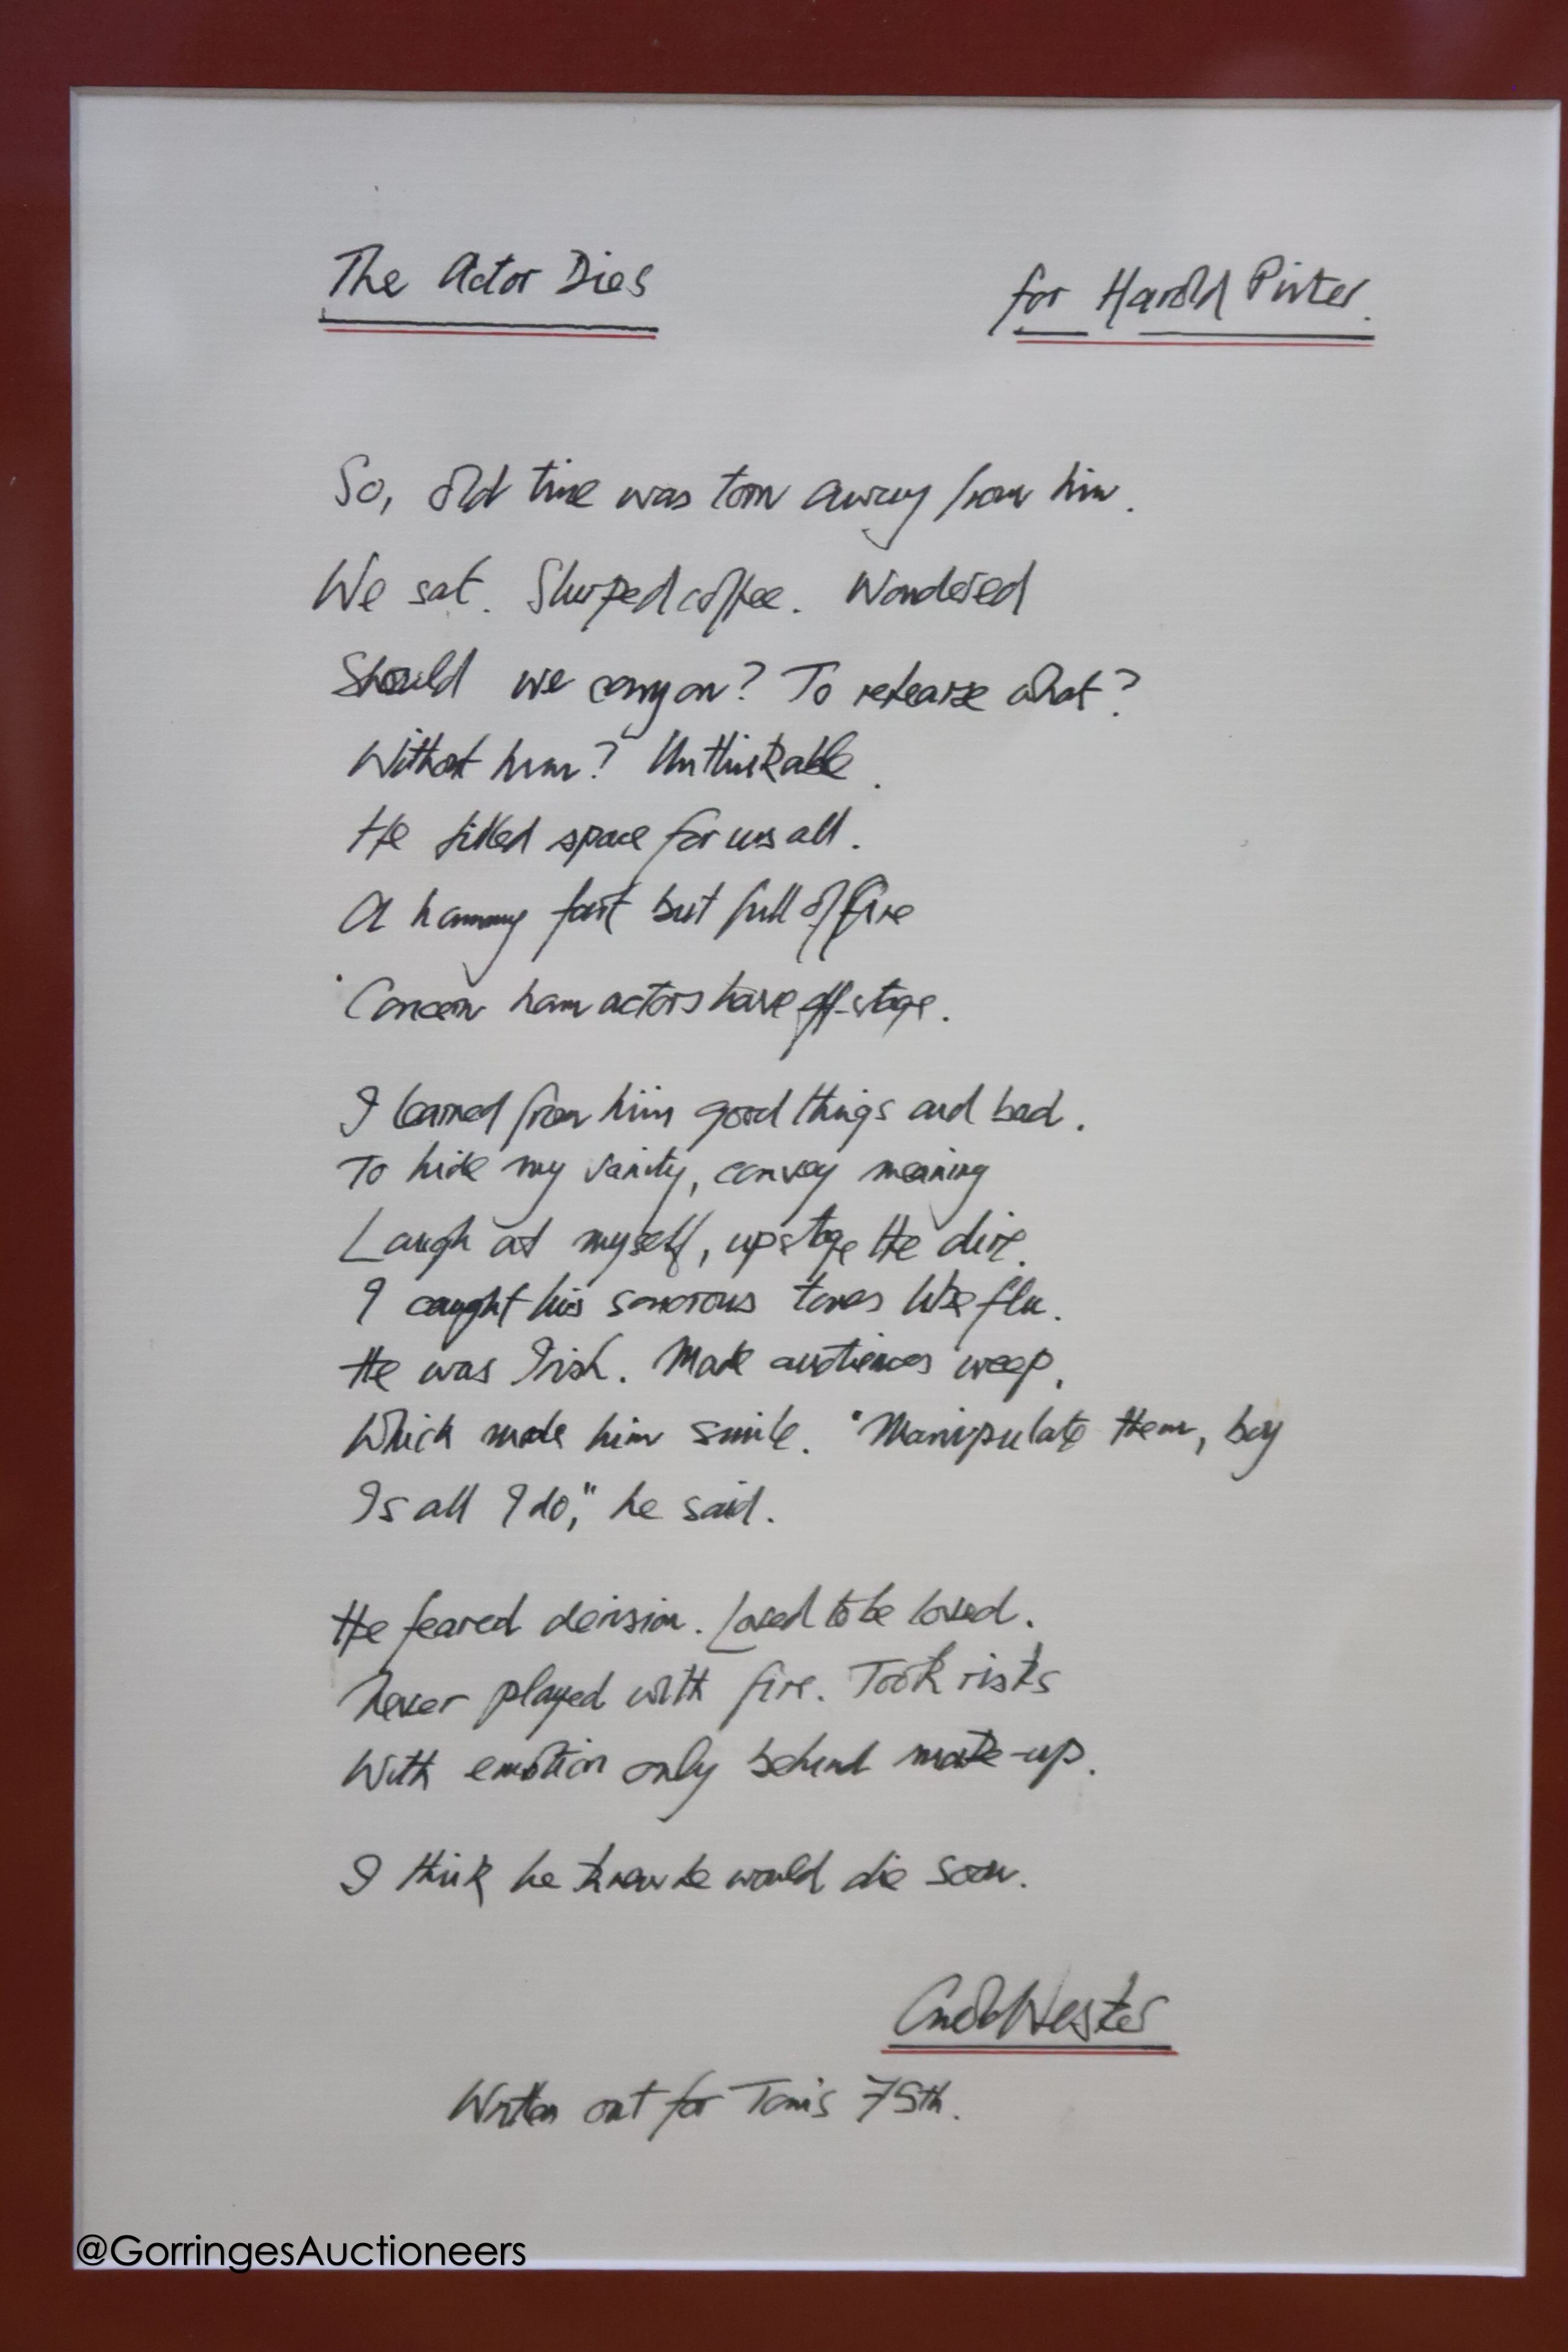 The Actor Dies for Harold Pinter.
So, old time was torn away from him.
We sat. Slurped coffee. Wondered
Should we carry on? To rehearse what?
Without him? Unthinkable.
He filled space for us all.
A hammy fart but full of fire
Concern ham actors have off-stage.
I learned from him good things and bad.
To hide my vanity, convey meaning
Laugh at myself, upstage the dire.
I caught his sonorous tones like flu.
He was Irish. Made audiences weep,
Which made him smile. "Manipulate them, boy
Is all I do," he said.
He feared derision. Loved to be loved.
Never played with fire. Took risks
With emotion only behind make-up.
I think he knew he would die soon.
Arnold Wesker
Written out for Tom's 75th.
@GorringesAuctioneers